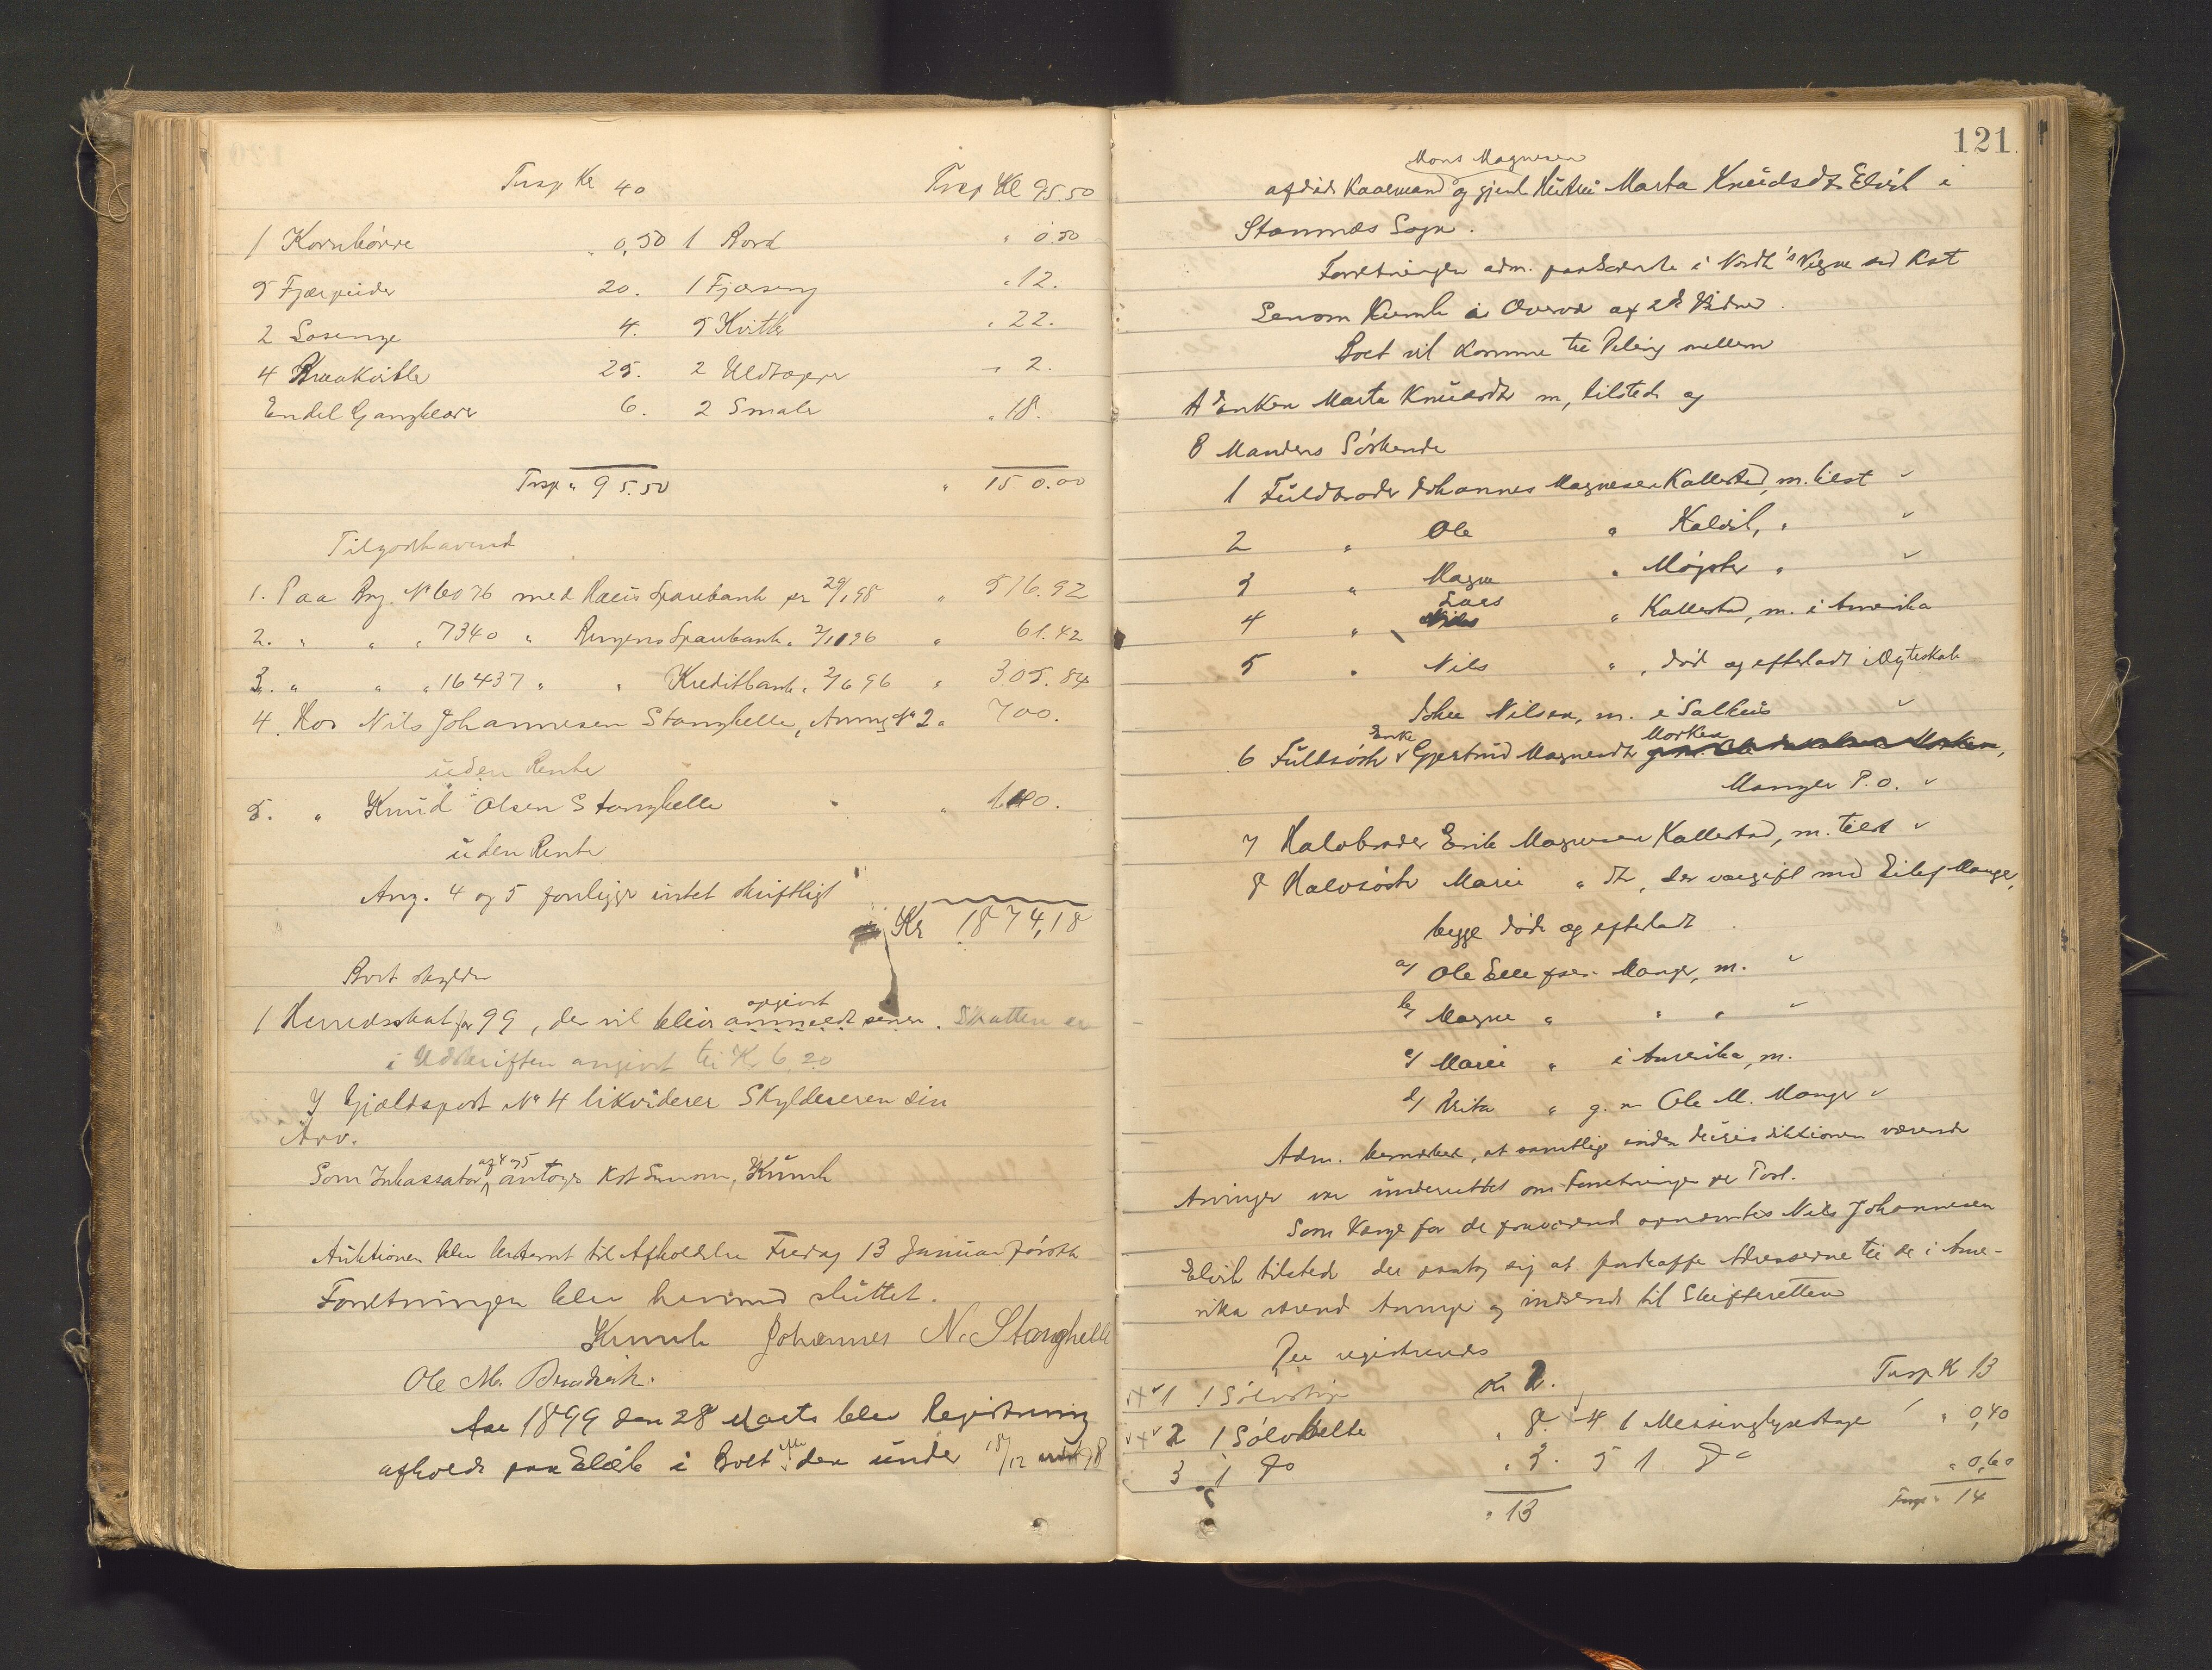 Trsp Kr 40 Trsp Kr 95.50
1 Kornbörre " 0,50 1 Bord " 0.50
5 Fjærpuder 20. 1 Fjærseng " 12.
2 4. 5 Kvitler " 22.
4 25. 2 Uldtæpper " 2.
Endel Gangklæder 6. 2 Smaler " 18.
Trsp " 95.50 " 150.00
Tilgodehavend
1. Paa Bog. No 6076 med Haus Sparebank pr 29/1 98 " 516.92
2. " " " 7340 " Bergens Sparebank " 2/1 96 " 61.42
3. " " " 16437 " " Kreditbank " 2/6 96 " 305.84
4. Hos Nils Johannesen Stanghelle, Anmg No 2 " 700.
uden Rente
5. " Knud Olsen Stanghelle " 140.
uden Rente
Ang. 4 og 5 forligger intet skriftligt
Kr 1874,18
Boet skylder
opgivet
1 Herredsskat for 99, der vil bliver anmeldt senere. Skatten er
i Udskriften angivet til Kr 6.20
I Gjældspost No 4 likviderer Skyldneren sin
Arv.
ag 4 og 5
Som Inkassator antoges Kst Senom. Kumle
Auktionen blev berammet til Afholdelse Fredag 13 Januar förstk
Forretningen blev hermed sluttet.
Kumle Johannes N. Stanghelle
Ole M.
Aar 1899 den 28 Marts blev Registrering
afholdt paa Elvik i Boet efter den under 18/12 98
121
Mons Magnesen
afdöde Kaarmand og gjenl Hustru Marta Knudsdtr Elvik i
Stamnæs Sogn.
Forretningen adm. paa Skiftet i Nordh's Vegne ved Kst
Senom Kumle i Overvær af 2de Vidner.
Boet vil komme til Deling mellem
A Enken Marta Knudsdtr m, tilstede og
B Mandens Söskende
1 Fuldbroder Johannes Magnesen Kallestad, m. tilst
2 " Ole " Kalvik, "
3 " Magne " Möyster "
4 " Lars " Kallestad, m. i Amerika
5 " Nils " , död og efterladt i Ægteskab
Johs Nilsen, m. i Salhus
6 Fuldsöst Enke Gjertrud Magnesdtr Morken
Manger P.O.
7 Halvbroder Erik Magnesen Kallestad, m. tilst
8 Halvsöster Mari " dtr, der var gift med Eilef Mange,
begge döde og efterladt
a/ Ole Ellefsen Mange, m.
b/ Magne " " "
c/ Mari " i Amerika, m.
d/ Brita " g. m Ole M. Mange
Adm. bemærket, at samtlige inden Jurisdiktionen værende
Arvinger var underrettet om Forretningen pr Post.
Som Værge for de fraværende opnævntes Nils Johannesen
Elvik tilstede der paatog sig at fremskaffe Adresserne til de i Ame-
rika værend Arvinger og indsende til Skifteretten
Der registreredes
1 1 Sölvskje Kr 2. Trsp K 13
2 1 Sölvbelte " 8. 4 1 Messinglysestage " 0,40
3 1 Do " 3. 5 1 Do " 0,60
" 13 Trsp " 14